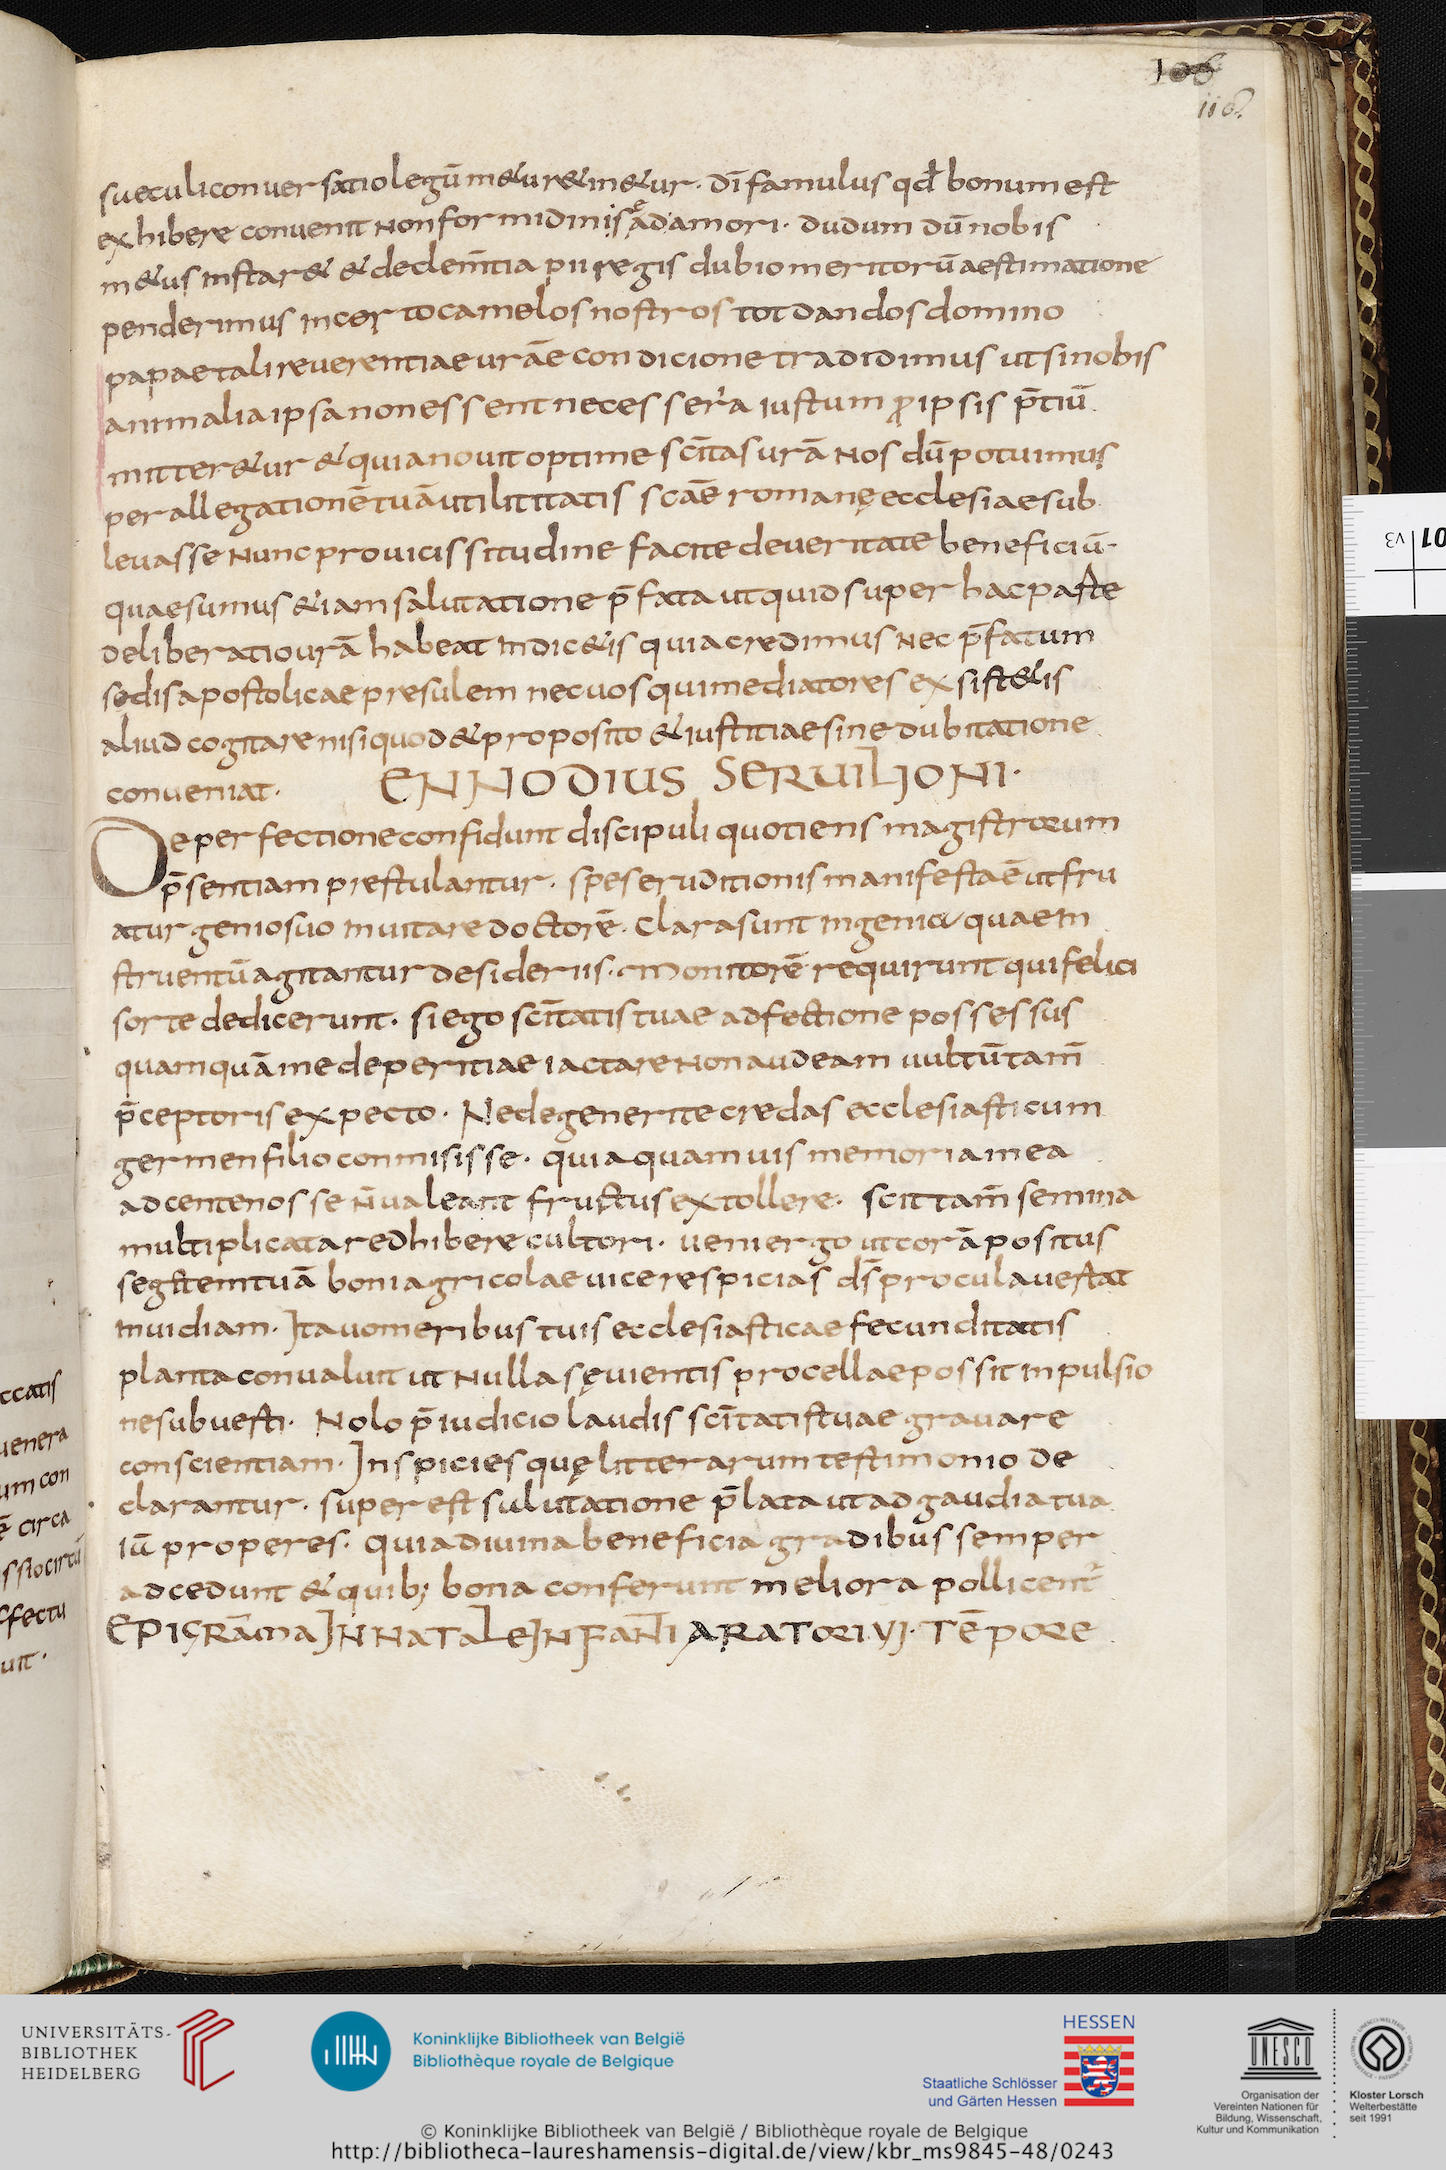 106
116
sueculiconuersatiolegū m&ur&in&ur. dī famulus qđ bonum est
exhibere conuenit non formidinis ę adamori. dudum dū nobis
m&us instar& & declem̄tia pii regis dubio meritorū aestimatione
penderimus incerto camelos nostros tot dandos domino
papae tali reuerentiae urāe condicione tradidimus ut si nobis
animalia ipsa non essent necessera iustum ꝓ ipsis p̄tiū
mitter&ur & quia nouit optime sc̄itas urā nos dū potuimus
per allegationē tuā utilititatis scāe romanę ecclesiae sub
leuasse nunc pro uicissitudine facite de ueritate beneficiū.
quaesumus &iam salutatione p̄fata ut quid super hac parte
deliberatio urā habeat indic&is quia credimus nec p̄fatum
sedis apostolicae presulem nec uos qui mediatores exsist&is
aliud cogitare nisi quod & proposito & iustitiae sine dubitatione
conueniat. ENNODIUS SERUILIONI.
De perfectione confidunt discipuli quotiens magistrorum
p̄sentiam prestulantur. spes eruditionis manifesta ē ut fru
atur genio suo inuitare doctorē. Clara sunt ingenia quae in
struentū agitantur desideriis. Monitorē requirunt qui felici
sorte dedicerunt. si ego sc̄itatis tuae adfectione possessus
quamquā me de peritiae iactare non audeam uultū tam̄
p̄ceptoris expecto. Ne degenerite credas ecclesiasticum
germen filio conmisisse. quia quamuis memoria mea
ad centenos se n̄ ualeant fructus extollere. scit tam̄ semina
multiplicata redhibere cultori. ueni ergo ut corā positus
segetem tuā boni agricolae uice respicias dś procul auertat
inuidiam. Ita uomeribus tuis ecclesiasticae fecunditatis
planta conualuit ut nulla sęuientis procellae possit inpulsio
ne subuerti. Nolo p̄iudicio laudis sc̄itatis tuae grauare
conscientiam. Inspicies quę litterarum testimonio de
clarantur. superest sulutatione p̄lata ut ad gaudia tua
iū properes. quia diuina beneficia gradibus semper
adcedunt & quib; bona conferunt meliora pollicent᷑
EPIGRĀMA IN NATALE INFANTI ARATORI VI. TĒPORE
ccatis
uenera
um con
ē circa
ssio circū
ffectu
uit.
01
v3
UNIVERSITÄTS-
BIBLIOTHEK
HEIDELBERG
Koninklijke Bibliotheek van België
Bibliothèque royale de Belgique
HESSEN
Staatliche Schlösser
und Gärten Hessen
UNESCO
Organisation der
Vereinten Nationen für
Bildung, Wissenschaft,
Kultur und Kommunikation
Kloster Lorsch
Welterbestätte
seit 1991
© Koninklijke Bibliotheek van België / Bibliothèque royale de Belgique
http://bibliotheca-laureshamensis-digital.de/view/kbr_ms9845-48/0243